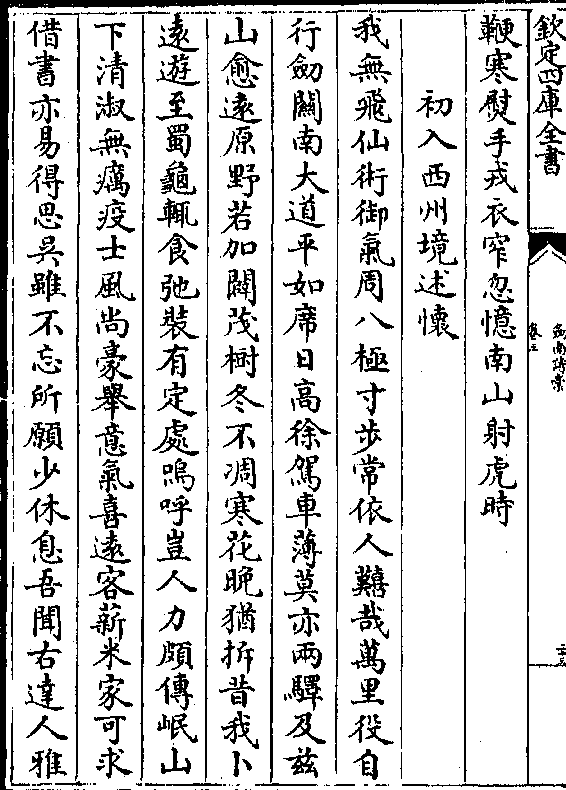 欽定四庫全書
劍南詩槀
卷三
鞭寒熨手戎衣窄忽憶南山射虎時
初入西州境述懷
我無飛仙術御氣周八極寸步常依人囏哉萬里役自
行劒關南大道平如席日高徐駕車薄莫亦兩驛及兹
山愈遠原野若加闢茂樹冬不凋寒花晚猶拆昔我卜
遠遊至蜀龜輒食弛裝有定處嗚呼豈人力頗傳岷山
下清淑無癘疫士風尚豪舉意氣喜遠客薪米家可求
借書亦易得思吳雖不忘所願少休息吾聞右達人雅